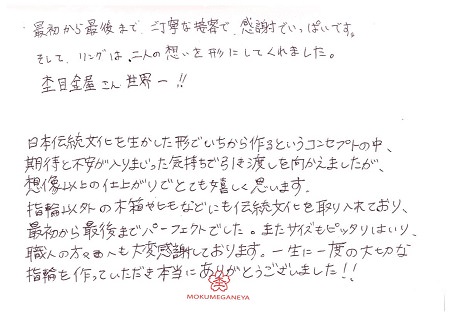 最初から最後まで、ご丁寧な接客で、感謝でいっぱいです。
そして、リングは、二人の想いを形にしてくれました。
杢目金屋さん世界一!!
日本伝統文化を生かした形でいちから作るというコンセプトの中、
期待と不安が入りまじった気持ちで引き渡しを向かえましたが、
想像以上の仕上がりでとても嬉しく思います。
指輪以外の木箱やヒモなどにも伝統文化を取り入れており、
最初から最後までパーフェクトでした。またサイズもピッタリはいり、
職人の方々へも大変感謝しております。一生に一度の大切な
指輪を作っていただき本当にありがとうございました!!
MOKUMEGANEYA